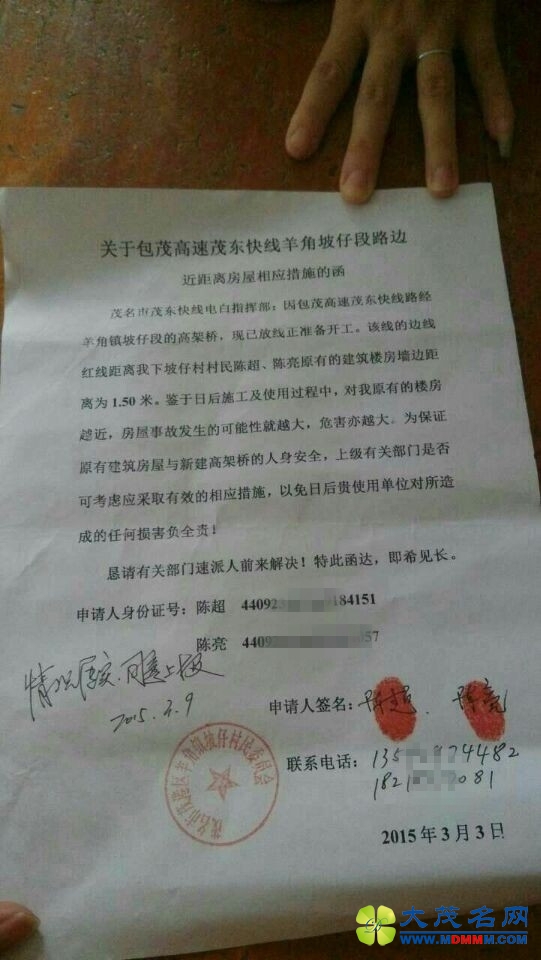 关于包茂高速茂东快线羊角坡仔段路边
近距离房屋相应措施的函
茂名市茂东快线电白指挥部：因包茂高速茂东快线路经
羊角镇坡仔段的高架桥，现已放线正准备开工。该线的边线
红线距离我下坡仔村村民陈超、陈亮原有的建筑楼房墙边距
离为 1.50 米。鉴于日后施工及使用过程中，对我原有的楼房
越近，房屋事故发生的可能性就越大，危害亦越大。为保证
原有建筑房屋与新建高架桥的人身安全，上级有关部门是否
可考虑应采取有效的相应措施，以免日后贵使用单位对所造
成的任何损害负全责！
恳请有关部门速派人前来解决！特此函达，即希见长。
申请人身份证号：陈超 44092 184151
陈亮 4409 57
情况属实.同意上报
2015.3.9
申请人签名：陈超. 陈亮
联系电话：135 974482
182 081
茂名市茂港区羊角镇坡仔村民委员会
2015 年 3 月 3 日
大茂名网
WWW.MDMMM.COM